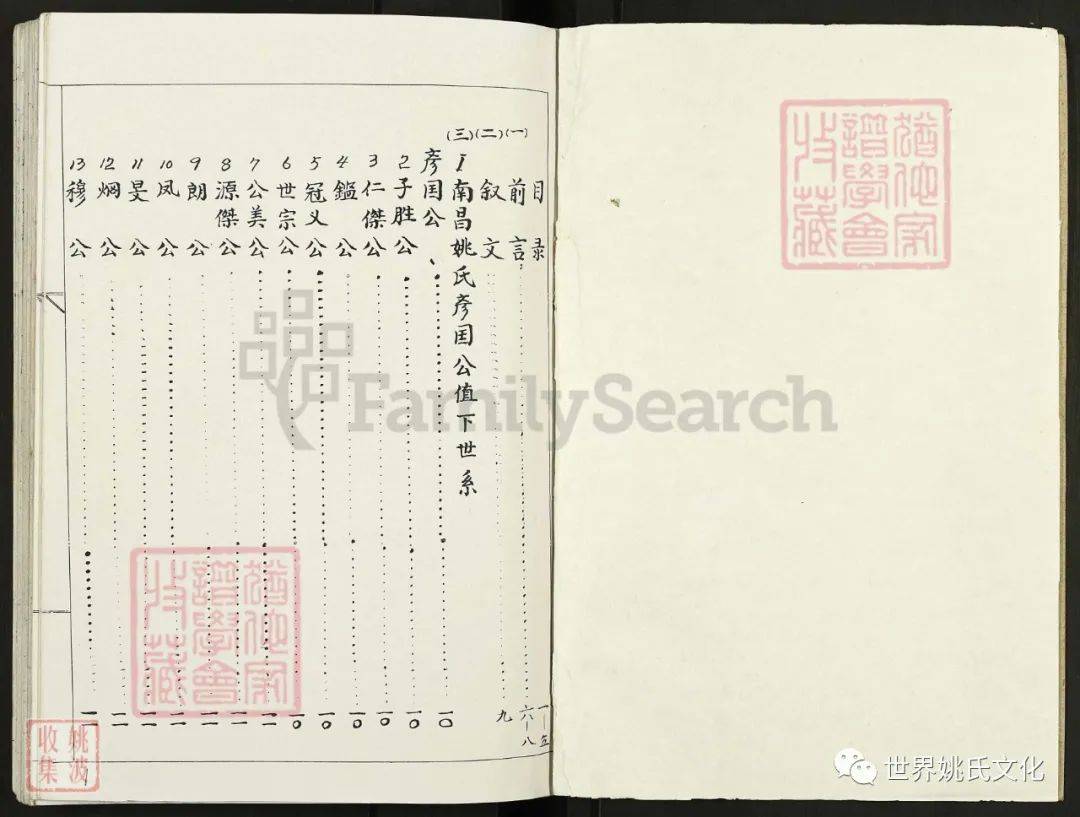 猶他家
譜學會
收藏
目录
(一)前言 一—五
(二)叙文 六—八
(三)1南昌姚氏彦囯公值下世系 九
彦囯公 一〇
2子胜公 一〇
3仁傑公 一〇
4鑑公 一〇
5冠义公 一〇
6世宗公 一〇
7公美公 一一
8源傑公 一一
9朗公 一一
10凤公 一一
11旻公 一一
12炯公 一一
13穆公 一一
猶他家
譜學會
收藏
姚波
收集
1
FamilySearch
世界姚氏文化